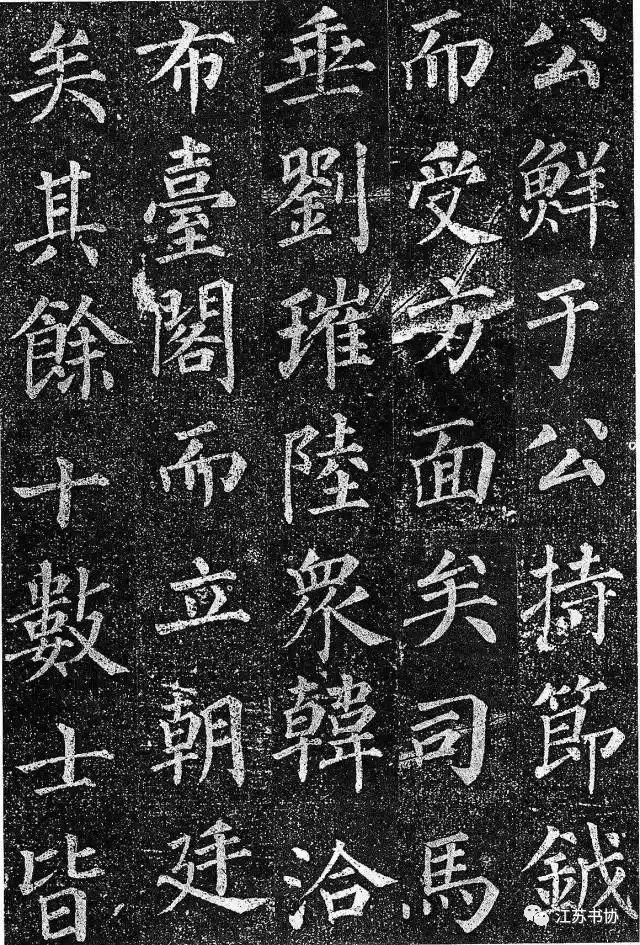 公鮮于公持節鉞
而受方面矣司馬
垂劉璀陸衆韓洽
布臺閣而立朝廷
矣其餘十數士皆
江苏书协